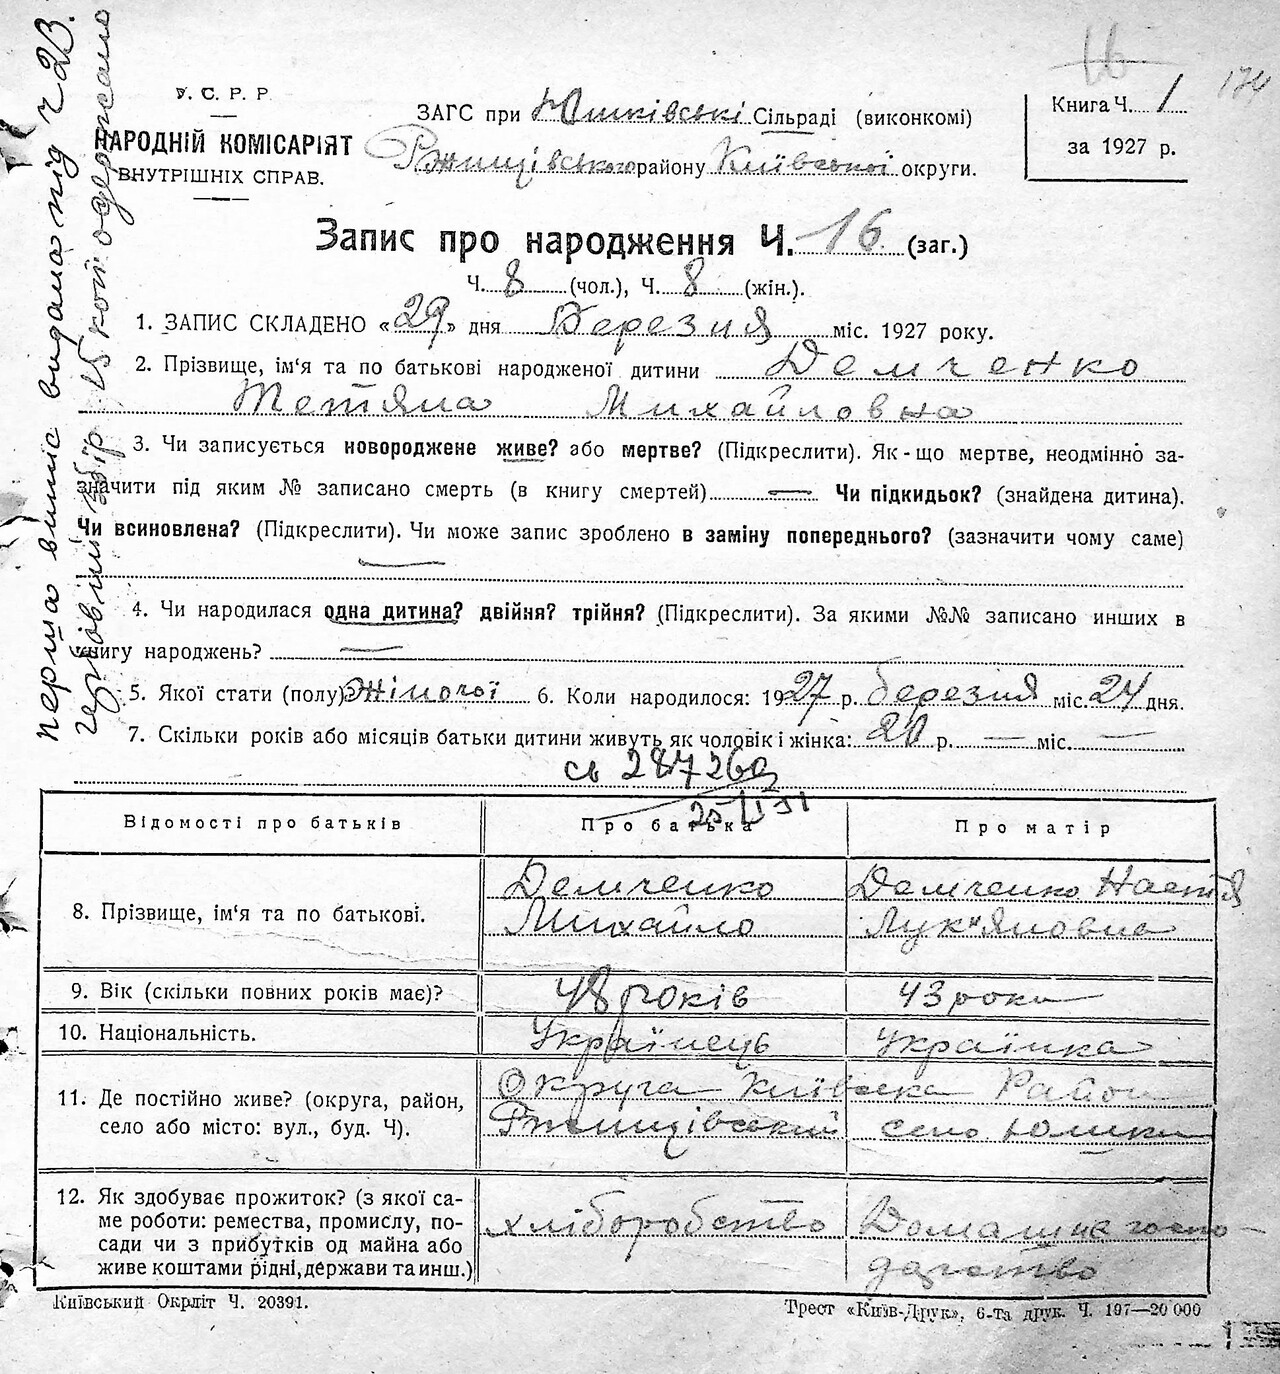 174
У. С. Р. Р.
НАРОДНІЙ КОМІСАРІЯТ
ВНУТРІШНІХ СПРАВ.
ЗАГС при Юшківські Сільраді (виконкомі)
Ржищівського району Київської округи.
Книга Ч. 1
за 1927 р.
Запис про народження Ч. 16 (заг.)
Ч. 8 (чол.), Ч. 8 (жін.).
1. ЗАПИС СКЛАДЕНО «29» дня Березня міс. 1927 року.
2. Прізвище, ім‘я та по батькові народженої дитини Демченко
Тетяна Михайловна
3. Чи записується новороджене живе? або мертве? (Підкреслити). Як-що мертве, неодмінно за-
значити під яким № записано смерть (в книгу смертей) — Чи підкидьок? (знайдена дитина).
Чи всиновлена? (Підкреслити). Чи може запис зроблено в заміну попереднього? (зазначити чому саме)
—
4. Чи народилася одна дитина? двійня? трійня? (Підкреслити). За якими №№ записано инших в
книгу народжень? —
5. Якої стати (полу)? Жіночої 6. Коли народилося: 1927 р. березня міс. 24 дня.
7. Скільки років або місяців батьки дитини живуть як чоловік і жінка: 20 р. — міс. —
Відомості про батьків
Про батька
Про матір
8. Прізвище, ім‘я та по батькові.
Демченко
Михайло
Демченко Настя
Лук"яновна
9. Вік (скільки повних років має)?
48 років
43 роки
10. Національність.
Українець
Українка
11. Де постійно живе? (округа, район,
село або місто: вул., буд. Ч).
Округа Київска Район
Ржищівський село Юшки
12. Як здобуває прожиток? (з якої са-
ме роботи: ремества, промислу, по-
сади чи з прибутків од майна або
живе коштами рідні, держави та инш.)
хліборобство
Домашне госпо-
дарство
Київський Окрліт Ч. 20391.
Трест «Київ-Друк», 6-та друк. Ч. 197—20 000
перша випис видана під ч 23.
гербовий збір 15 коп одержано